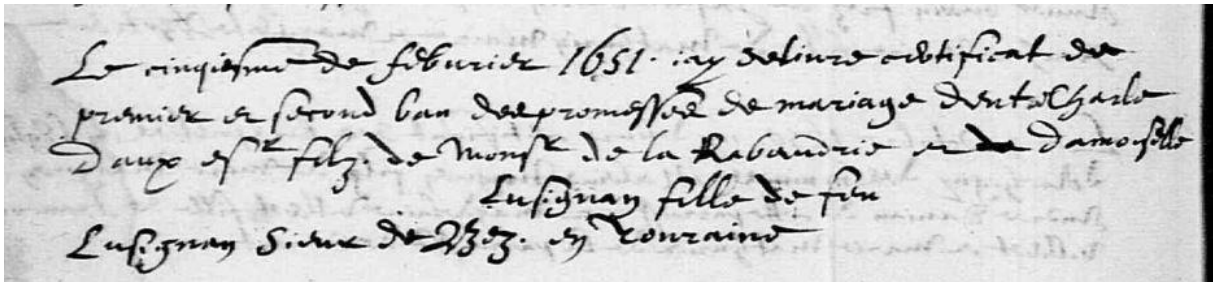 Le cinqiesme de febvrier 1651. iay delivre certificat de
premier et second ban des promesses de mariage dentre Charle
Daux esr filz. de Monsr de la Rabaudrie et de Damoiselle
Lusignan fille de feu
Lusignan Sieur de en Touraine